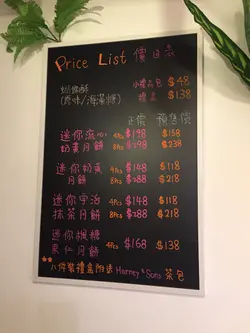 Price List 價目表
奶油酥 小禮品包 $48
(原味/海藻糖) 禮盒 $138
正價 預售價
迷你流心 4Pcs $198 $158
奶黃月餅 8Pcs $298 $238
迷你奶黃 4Pcs $148 $118
月餅 8Pcs $288 $218
迷你宇治 4Pcs $148 $118
抹茶月餅 8Pcs $288 $218
迷你楓糖 4Pcs $168 $138
果仁月餅
八件裝禮盒附送 Harney & Sons 茶包